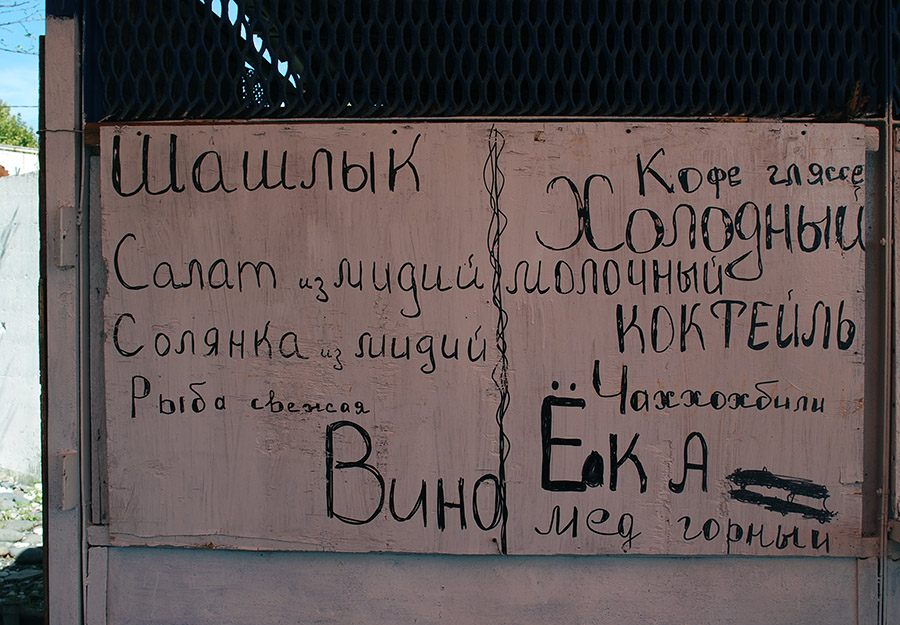 Шашлык
Салат из мидий
Солянка из мидий
Рыба свежая
Вино
Кофе гляссе
Холодный
молочный
коктейль
Чаххохбили
Ёка
мед горный